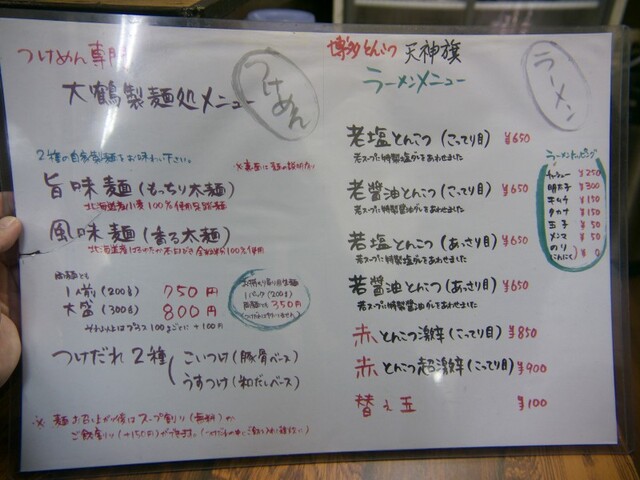 つけめん専門
大鶴製麺処メニュー
つけめん
2種の自家製麺をお味わい下さい。
旨味麺(もっちり太麺)
北海道産小麦100%使用
風味麺(香る太麺)
100%使用
両麺とも
1人前(200g) 750円
大盛(300g) 800円
それ以上はプラス100gごとに+100円
お持ち帰り用生麺
1パック(200g)
両麺とも350円
つけだれ2種
こいつけ(豚骨ベース)
うすつけ(和だしベース)
※麺お召し上がり後はスープ割り(無料)か
ご飯割り(+150円)ができます。
博多とんこつ 天神旗
ラーメンメニュー
ラーメン
老塩とんこつ(こってり目) ¥650
老スープに特製塩ダレをあわせました
老醤油とんこつ(こってり目) ¥650
老スープに特製醤油ダレをあわせました
若塩とんこつ(あっさり目) ¥650
若スープに特製塩ダレをあわせました
若醤油とんこつ(あっさり目) ¥650
若スープに特製醤油ダレをあわせました
赤とんこつ激辛(こってり目) ¥850
赤とんこつ超激辛(こってり目) ¥900
替え玉 ¥100
ラーメントッピング
チャシュー ¥250
明太子 ¥300
キムチ ¥150
タカナ ¥150
玉子 ¥50
メンマ ¥50
のり
にんにく ¥0